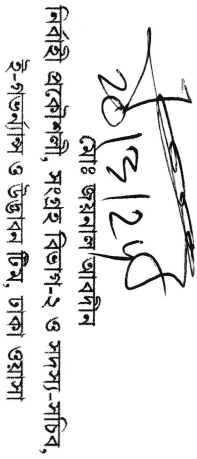 ২০/৩/২৫
মোঃ জয়নাল আবদীন
নির্বাহী প্রকৌশলী, সংগ্রহ বিভাগ-২ ও সদস্য-সচিব,
ই-গভর্ন্যান্স ও উদ্ভাবন টিম, ঢাকা ওয়াসা